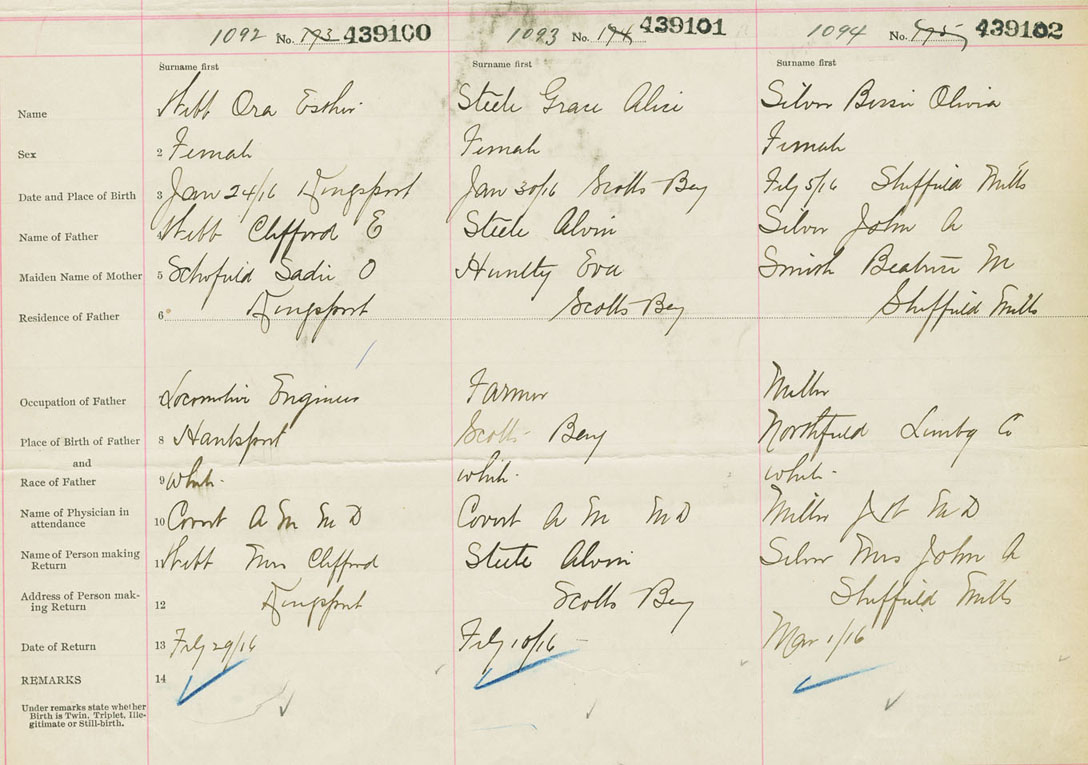 1092 No. 193 439100 1093 No. 194 439101 1094 No. 195 439102
Surname first Surname first Surname first
Name Webb Ora Esther Steele Grace Alice Silver Bessie Olivia
Sex 2 Female Female Female
Date and Place of Birth 3 Jan 24/16 Kingsport Jan 30/16 Scotts Bay Feby 5/16 Sheffield Mills
Name of Father 4 Webb Clifford E Steele Alvin Silver John A
Maiden Name of Mother 5 Schofield Sadie O Huntly Eva Smith Beatrice M
Residence of Father 6 Kingsport Scotts Bay Sheffield Mills
Occupation of Father Locomotive Engineer Farmer Miller
Place of Birth of Father 8 Hantsport Scotts Bay Northfield Lunbg Co
and
Race of Father 9 white white white
Name of Physician in
attendance 10 Covert A M M D Covert A M M D Miller M D
Name of Person making
Return 11 Webb Mrs Clifford Steele Alvin Silver Mrs John A
Address of Person mak-
ing Return 12 Kingsport Scotts Bay Sheffield Mills
Date of Return 13 Feby 29/16 Feby 10/16 Mar 1/16
REMARKS 14
Under remarks state whether
Birth is Twin, Triplet, Ille-
gitimate or Still-birth.